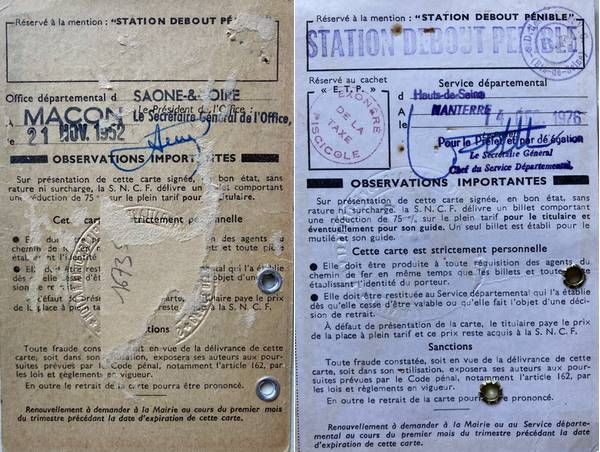 Réservé à la mention : "STATION DEBOUT PÉNIBLE"
Office départemental d SAONE-&-LOIRE
A MACON Le Président de l'Office :
le 21 NOV. 1952 Le Secrétaire Général de l'Office,
OBSERVATIONS IMPORTANTES
Sur présentation de cette carte signée, en bon état, sans
rature ni surcharge, la S. N. C. F. délivre un billet comportant
une réduction de 75 % sur le plein tarif pour le titulaire.
Cette carte est strictement personnelle
Elle doit être à toute réquisition des agents du
chemin de fer en même temps que les billets et toute
établissant l'identité
16735
Elle doit être au qui l'a établie
dès qu'elle l'objet d'une décision
A défaut de présentation de la carte, le titulaire paye le prix
de la place à plein tarif et ce prix reste acquis à la S. N. C. F.
Sanctions
Toute fraude constatée, soit en vue de la délivrance de cette
carte, soit dans son utilisation, exposera ses auteurs aux pour-
suites prévues par le Code pénal, notamment l'article 162, par
les lois et règlements en vigueur.
En outre le retrait de la carte pourra être prononcé.
Renouvellement à demander à la Mairie au cours du premier mois
du trimestre précédant la date d'expiration de cette carte.
Réservé à la mention : "STATION DEBOUT PÉNIBLE"
STATION DEBOUT PENIBLE
Réservé au cachet
« E. T. P. »
EXONÉRÉ
DE LA
TAXE
PISCICOLE
Service départemental
d Hauts-de-Seine
A NANTERRE
le 1976
Pour le Préfet et par délégation
Le Secrétaire Général
Chef du Service Départemental,
OBSERVATIONS IMPORTANTES
Sur présentation de cette carte signée, en bon état, sans
rature ni surcharge, la S. N. C. F. délivre un billet comportant
une réduction de 75 %, sur le plein tarif pour le titulaire et
éventuellement pour son guide. Un seul billet est établi pour le
mutilé et son guide.
Cette carte est strictement personnelle
● Elle doit être produite à toute réquisition des agents du
chemin de fer en même temps que les billets et toute
établissant l'identité du porteur.
● Elle doit être restituée au Service départemental qui l'a établie
dès qu'elle cesse d'être valable ou qu'elle fait l'objet d'une déci-
sion de retrait.
A défaut de présentation de la carte, le titulaire paye le prix
de la place à plein tarif et ce prix reste acquis à la S. N. C. F.
Sanctions
Toute fraude constatée, soit en vue de la délivrance de cette
carte, soit dans son utilisation, exposera ses auteurs aux pour-
suites prévues par le Code pénal, notamment l'article 162, par
les lois et règlements en vigueur.
En outre le retrait de la carte pourra être prononcé.
Renouvellement à demander à la Mairie ou au Service départe-
mental au cours du premier mois du trimestre précédant la date
d'expiration de cette carte.